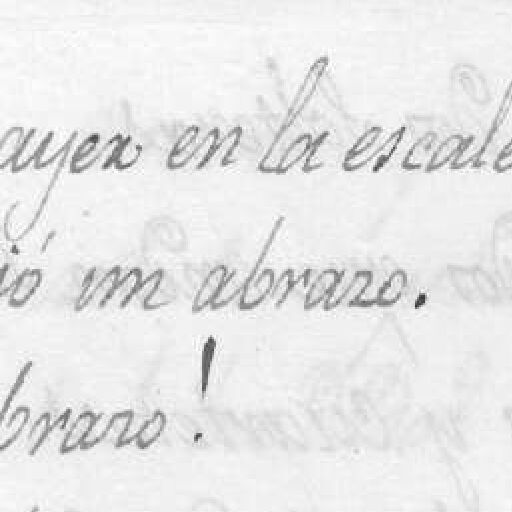 ayer en la escale
ió un abrazo.
brazo!